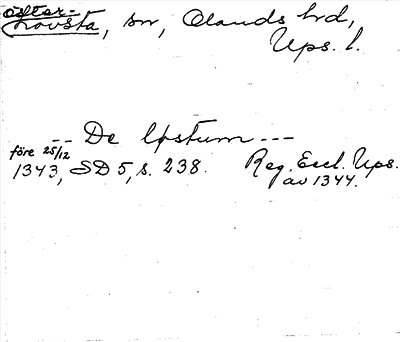 öster-
Lövsta, sn, Olands hd,
Ups. l.
-- De Lpstum ---
före 25/12
1343, SD 5, s. 238. Reg. Eccl. Ups.
av 1344.